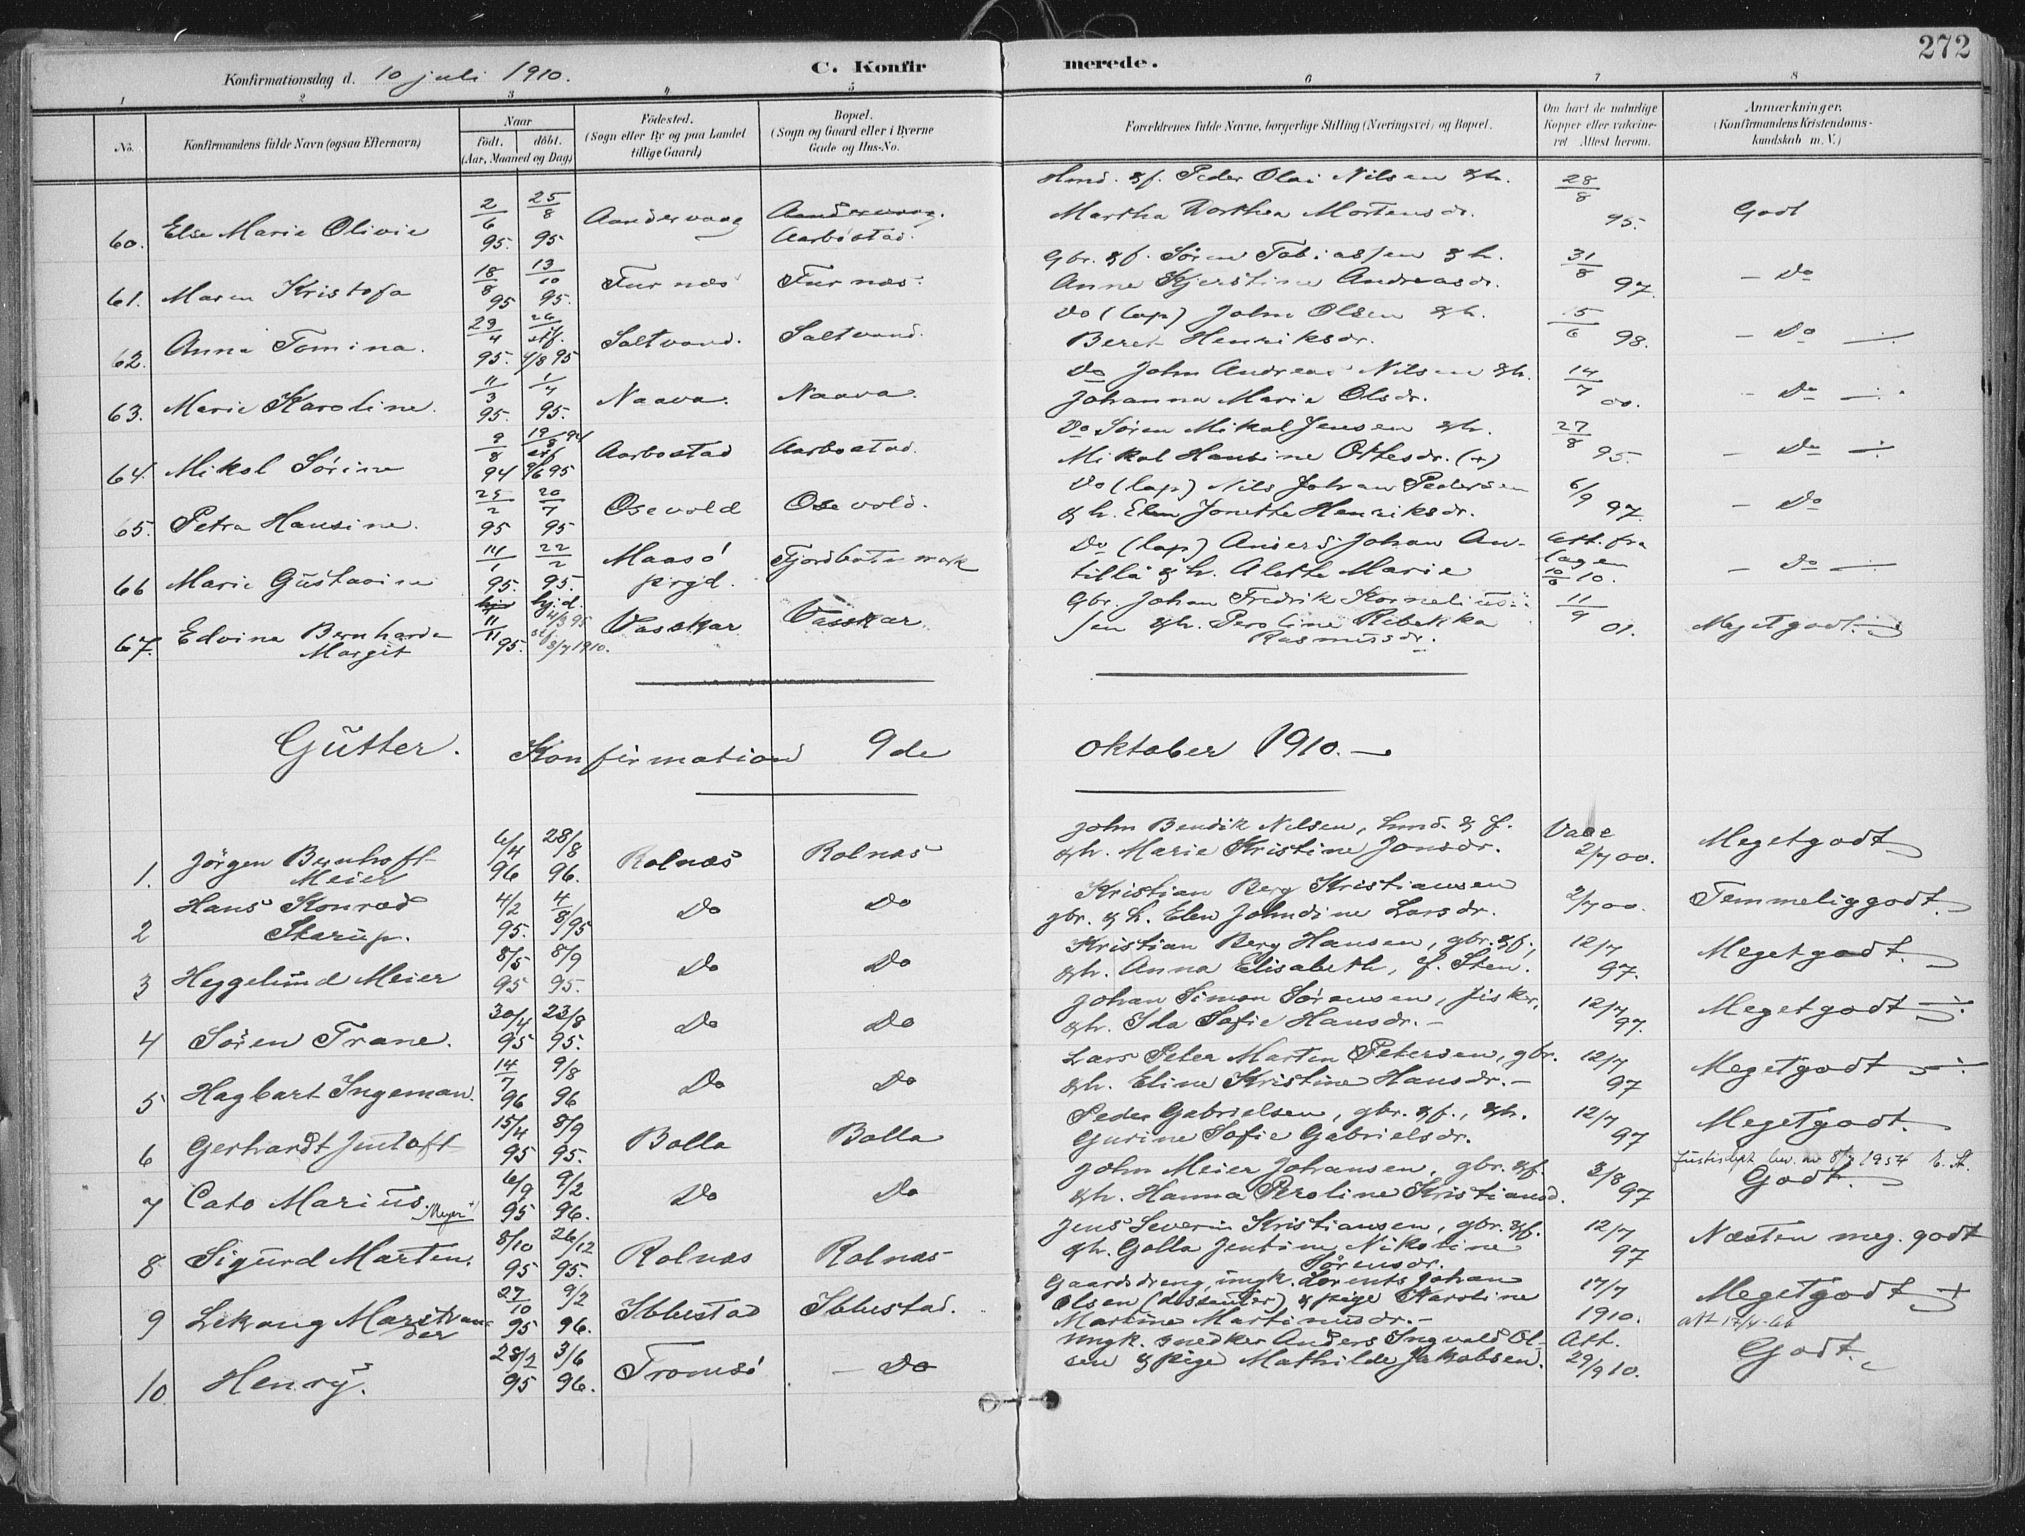 272
Konfirmationsdag d. 10 juli 1910. C. Konfir merede.
1 2 3 4 5 6 7 8
No. Konfirmandens fulde Navn (ogsaa Efternavn) Naar födt. döbt. (Aar, Maaned og Dag) Födested. (Sogn eller By og paa Landet tillige Gaard) Bopæl. (Sogn og Gaard eller i Byerne Gade og Hus-No. Forældrenes fulde Navne, borgerlige Stilling (Næringsvei) og Bopæl. Om havt de naturlige Kopper eller vakcineret Attest herom. Anmærkninger. (Konfirmandens Kristendomskundskab m. V.)
Hmd. & f. Peder Olai Nilsen & h. 28/8
60. Else Marie Olivie 2/6 95. 25/8 95 Aandervaag Aandervaag. Aarbostad. Martha Dorthea Mortensdr. 95. Godt
Gbr. & f. Sören Tobiassen & h. 31/8
61. Maren Kristofa 18/8 95 13/10 95. Furnæs Furnæs. Anne Kjerstine Andreasdr. 97. - Do
Do (lap) John Olsen & h. 15/6
62. Anna Tomina. 29/4 95. 26/ stf. 4/8 95 Saltvand. Saltvand. Beret Henriksdr. 98. - Do
Do John Andreas Nilsen & h. 14/7
63. Marie Karoline. 11/3 95. 1/7 95. Naava. Naava. Johanna Marie Olsdr. 00. - Do
Do Sören Mikal Jensen & h. 27/8
64. Mikal Sörine 9/8 94 19/8 94 stf. 9/6 95 Aarbostad Aarbostad. Mikal Hansine Ottesdr. (+) 95. - Do
Do (lap) Nils Johan Pedersen 6/9
65. Petra Hansine. 25/2 95 20/7 95 Osevold Osevold. & h. Elen Jonette Henriksdr. 97. - Do
Do (lap) Anders Johan An- Att. fra
66 Marie Gustavine 14/1 95. 22/2 95. Maasö prgd. Fjordbotnmark tilla & h. Alette Marie lagen 10/6 10. - Do
Gbr. Johan Fredrik Kornelius- 11/9
67. Edvine Bernharda Margit 11/11 95. hj.d. 4/3 96 stf. 3/7 1910. Vasskar Vasskar sen & h. Peroline Rebekka Rasmusdr. 01. Megetgodt.
Gutter. Konfirmation 9de oktober 1910.
John Bendik Nilsen, hmd. & f. Vacc
1. Jörgen Bernhoft Meier 6/4 96 28/8 96. Rolnæs Rolnæs & h. Marie Kristine Jonsdr. 2/7 00. Megetgodt
Kristian Berg Kristiansen
2 Hans Konrad Skarup. 4/2 95. 4/8 95 Do Do gbr. & h. Elen Johndine Larsdr. 2/7 00. Temmeliggodt.
Kristian Berg Hansen, gbr. & f.,
3 Heggelund Meier 8/5 95 8/9 95. Do Do & h. Anna Elisabeth, f. Sten. 12/7 97. Megetgodt.
Johan Simon Sörensen, fisker,
4 Sören Trane. 30/4 95 23/8 95. Do Do & h. Ida Sofie Hansdr. 12/7 97. Megetgodt
Lars Peter Marten Petersen, gbr.
5 Hagbart Ingeman. 14/7 96 9/8 96 Do Do & h. Eline Kristine Hansdr. 12/7 97 Megetgodt
Peder Gabrielsen, gbr. & f., & h.
6 Gerhardt Justoft 15/4 95 8/9 95. Bolla Bolla Gurine Sofie Gabrielsdr. 12/7 97 Megetgodt.
John Meier Johansen, gbr. & f. 1954
7 Cato Marius "Meyer" 6/9 95 9/2 96. Do Do & h. Hanna Peroline Kristiansd. 3/8 97 Godt.
Jens Severin Kristiansen, gbr. & f.
8 Sigurd Marten. 8/10 95 26/12 95. Rolnæs Rolnæs & h. Golla Jentine Nikoline Sörensdr. 12/7 97 Næsten meg. godt
Gaardsdreng, ungk. Lorents Johan
9 Lekang Marstrander 27/10 95 9/2 96. Ibbestad Ibbestad. Olsen (dissenter) & pige Karoline Martine Martinusdr. 17/7 1910. Megetgodt
att 12/4-66
ungk. snedker Anders Ingvald Ol- Att.
10. Henry. 28/2 95 3/6 96. Tromsö - Do sen & pige Mathilde Jakobsen. 29/9 10. Godt.